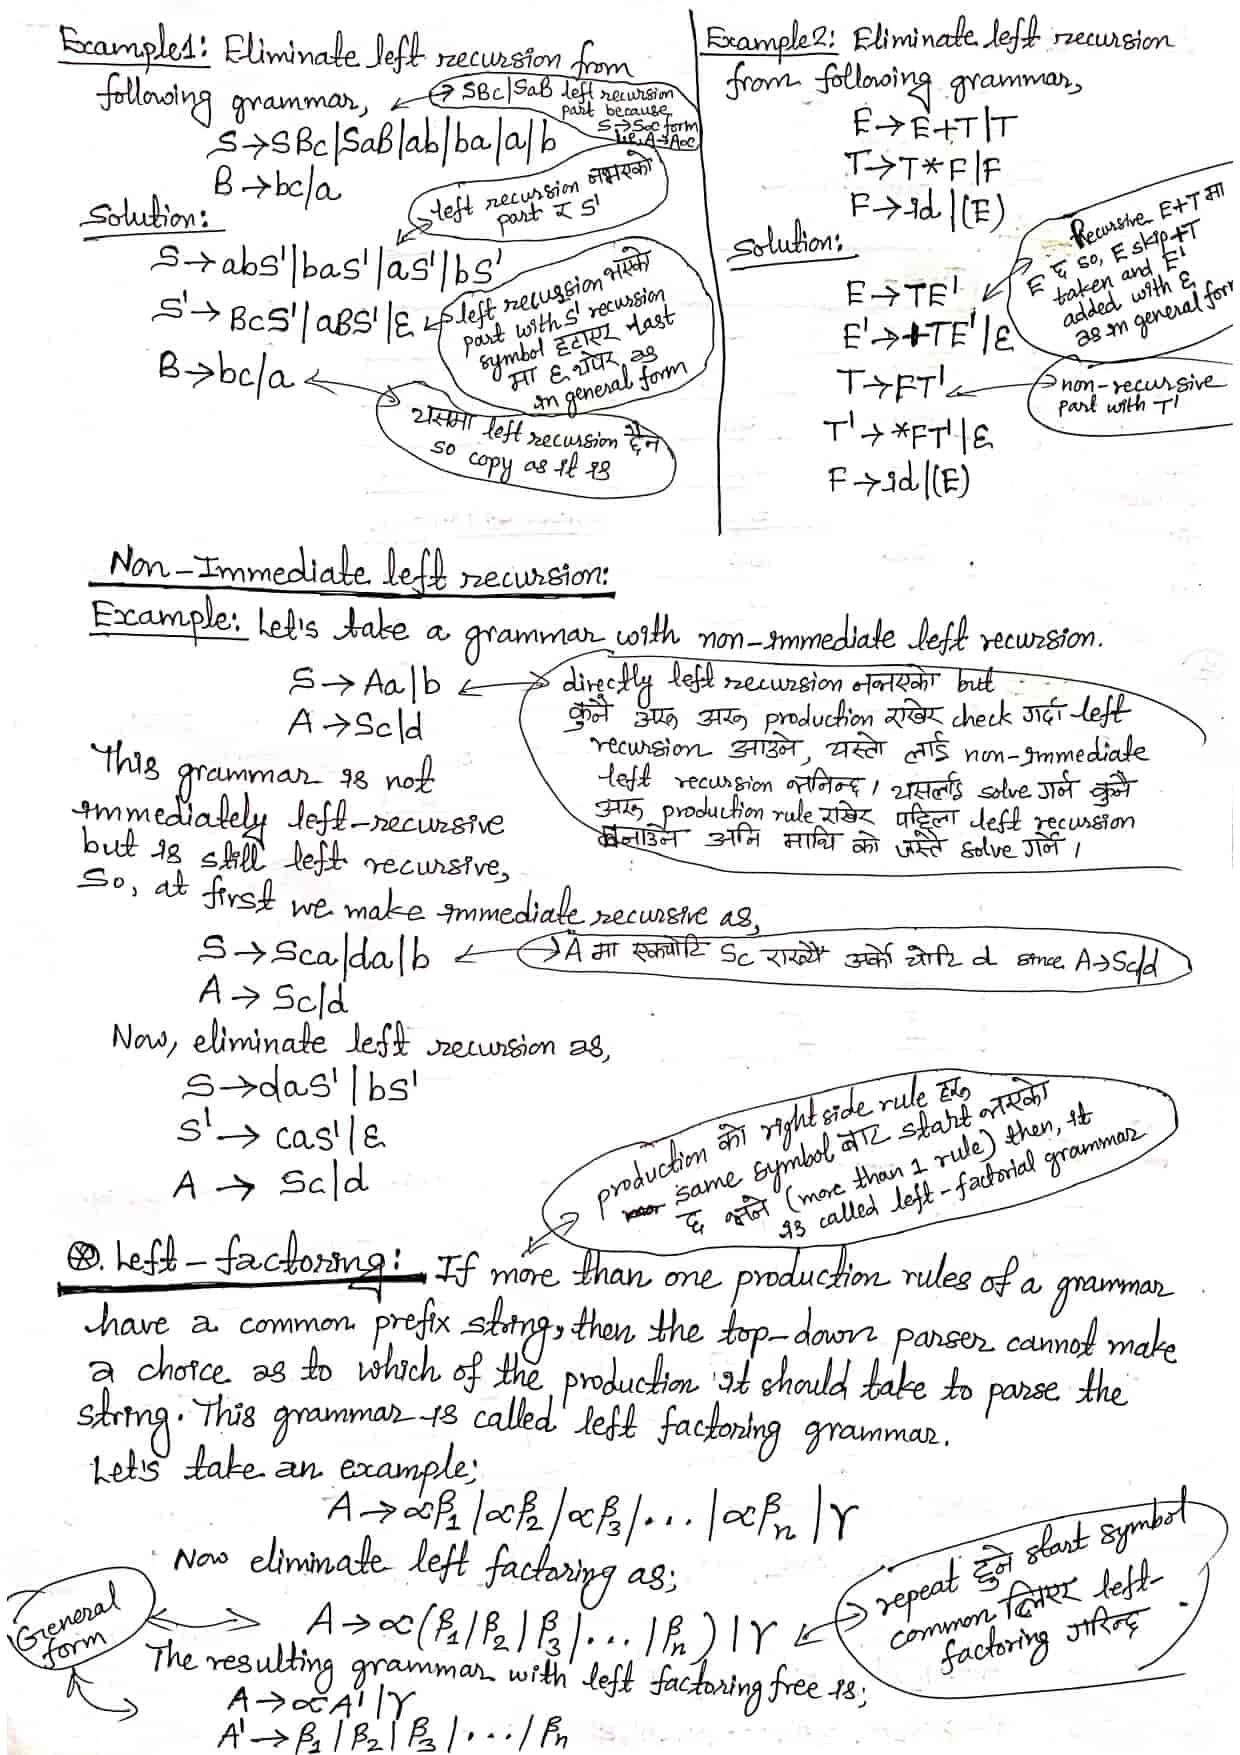 Example1: Eliminate left recursion from
following grammar,
SBc|SaB left recursion
part because
S→S∝ form
i.e, A→A∝
S→SBc|SaB|ab|ba|a|b
B→bc|a
left recursion नभएको
part र S'
Solution:
S→abS'|baS'|aS'|bS'
S'→BcS'|aBS'|ε
left recursion भएको
part with S' recursion
symbol हटाएर last
मा ε थपेर as
in general form
B→bc|a
यसमा left recursion छैन
so copy as it is
Example2: Eliminate left recursion
from following grammar,
E→E+T|T
T→T*F|F
F→id|(E)
Solution:
Recursive E+T मा
E छ so, E skip +T
taken and E'
added with ε
as in general form
E→TE'
E'→+TE'|ε
T→FT'
non-recursive
part with T'
T'→*FT'|ε
F→id|(E)
Non-Immediate left recursion:
Example: Let's take a grammar with non-immediate left recursion.
S→Aa|b
A→Sc|d
directly left recursion नभएको but
कुनै अरु अरु production राखेर check गर्दा left
recursion आउने, यस्तो लाई non-immediate
left recursion भनिन्छ। यसलाई solve गर्न कुनै
अरु production rule राखेर पहिला left recursion
बनाउने अनि माथि को जस्तै solve गर्ने।
This grammar is not
immediately left-recursive
but is still left recursive,
So, at first we make immediate recursive as,
S→Sca|da|b
A मा एकचोटि Sc राख्यौं अर्को चोटि d since A→Sc|d
A→Sc|d
Now, eliminate left recursion as,
S→daS'|bS'
S'→caS'|ε
A→Sc|d
production को right side rule हरु
same symbol बाट start भएको
छ भने (more than 1 rule) then, it
is called left-factorial grammar
⊗. Left-factoring: If more than one production rules of a grammar
have a common prefix string, then the top-down parser cannot make
a choice as to which of the production it should take to parse the
string. This grammar is called left factoring grammar.
Let's take an example;
A→∝β₁|∝β₂|∝β₃|...|∝βₙ|γ
Now eliminate left factoring as;
General
form
A→∝(β₁|β₂|β₃|...|βₙ)|γ
repeat हुने start symbol
common लिएर left-
factoring गरिन्छ
The resulting grammar with left factoring free is;
A→∝A'|γ
A'→β₁|β₂|β₃|...|βₙ